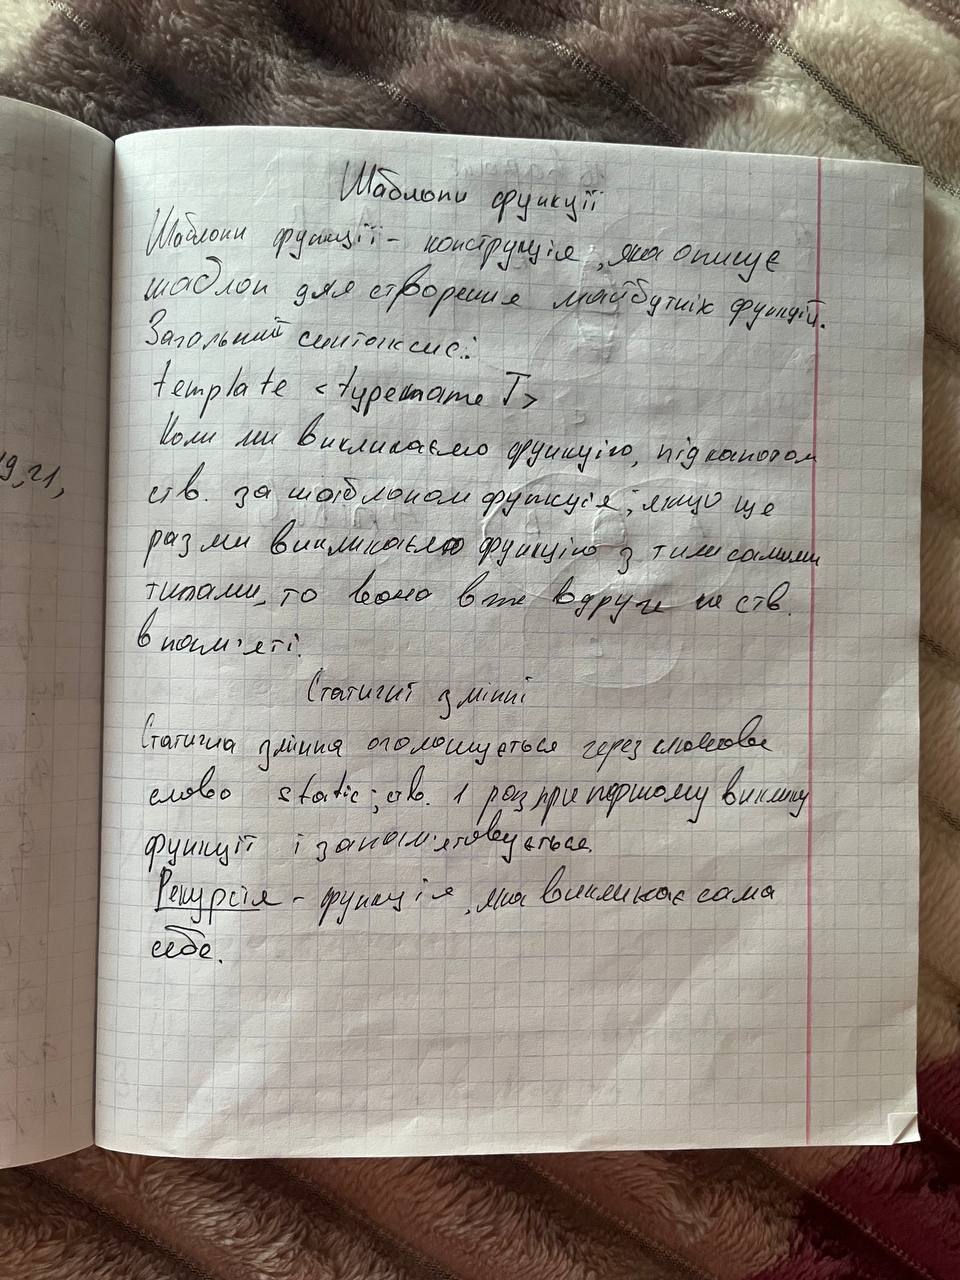 Шаблони функції
Шаблони функції - конструкція, яка описує
шаблон для створення майбутніх функцій.
Загальний синтаксис:
template <typename T>
Коли ми викликаємо функцію, під капотом
ств. за шаблоном функція; якщо ще
раз ми викликаємо функцію з тими самими
типами, то вона вже вдруге не ств.
в пам'яті.
Статичні змінні
Статична змінна оголошується через ключове
слово static; ств. 1 раз при першому виклику
функції і запам'ятовується.
Рекурсія - функція, яка викликає сама
себе.
19, 21,